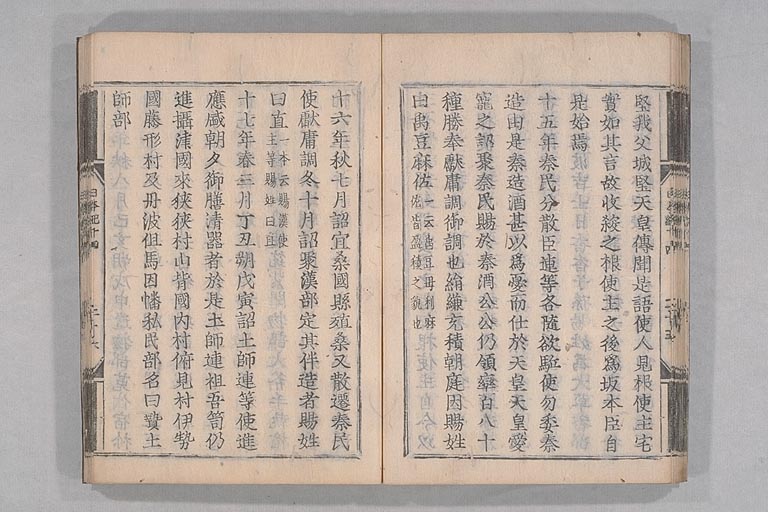 堅我父城堅天皇傳聞是語使人見根使主宅
實如其言故收殺之根使主之後爲坂本臣自
是始焉
十五年秦民分散臣連等各隨欲駈使勿委秦
造由是秦造酒甚以爲憂而仕於天皇天皇愛
寵之詔聚秦民賜於秦酒公公仍領率百八十
種勝奉獻庸調御調也絹縑充積朝庭因賜姓
曰禹豆麻佐一云禹豆母利麻
佐皆盈積之貌也
十六年秋七月詔宜桑國縣殖桑又散遷秦民
使獻庸調冬十月詔聚漢部定其伴造者賜姓
曰直一本云賜漢使
主等賜姓曰直
十七年春三月丁丑朔戊寅詔土師連等使進
應盛朝夕御膳清器者於是土師連祖吾笥仍
進攝津國來狹狹村山背國内村俯見村伊勢
國藤形村及丹波但馬因幡私民部名曰贄土
師部
日本紀十四